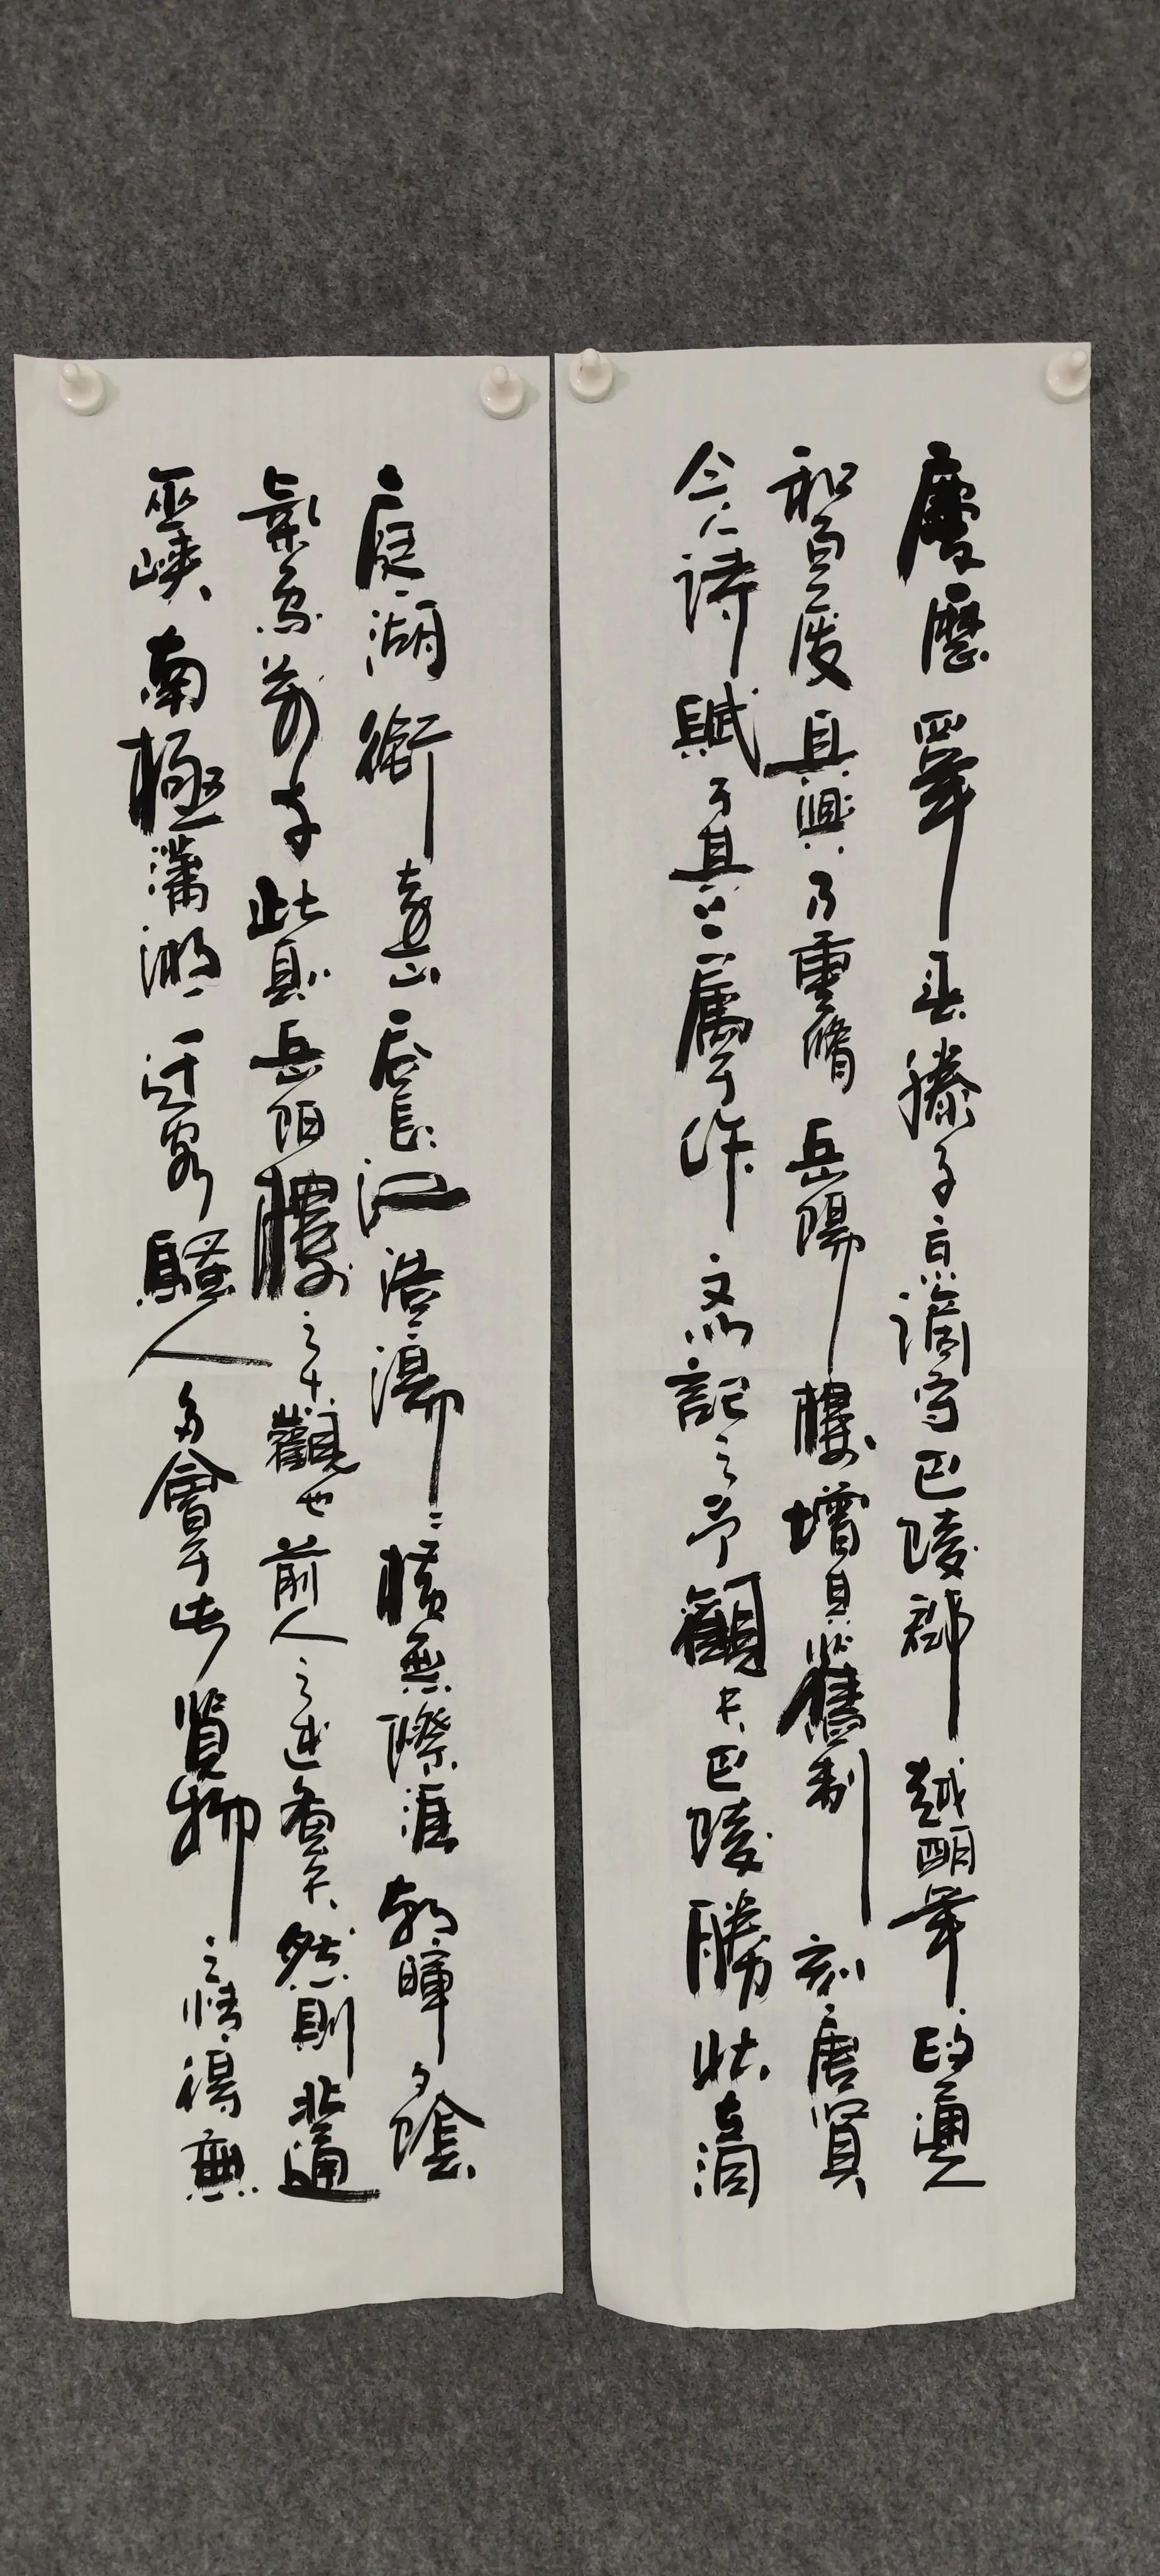 慶曆四年春滕子京謫守巴陵郡越明年政通人
和百廢具興乃重脩岳陽樓增其舊制刻唐賢
今人詩賦于其上屬予作文以記之予觀夫巴陵勝狀在洞
庭湖銜遠山吞長江浩浩湯湯橫無際涯朝暉夕陰
氣象萬千此則岳陽樓之大觀也前人之述備矣然則北通
巫峽南極瀟湘遷客騷人多會于此覽物之情得無